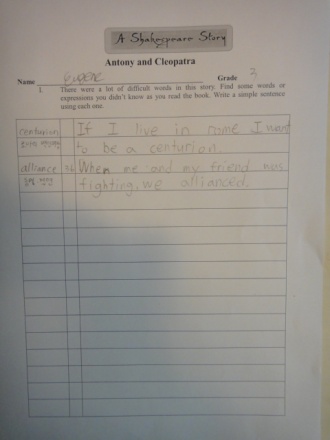 A Shakespeare Story
Antony and Cleopatra
Name eugene Grade 3
1. There were a lot of difficult words in this story. Find some words or
expressions you didn't know as you read the book. Write a simple sentence
using each one.
centurion If I live in rome I want
to be a centurion.
alliance 76 When me and my friend was
동맹, 연합 fighting, we allianced.